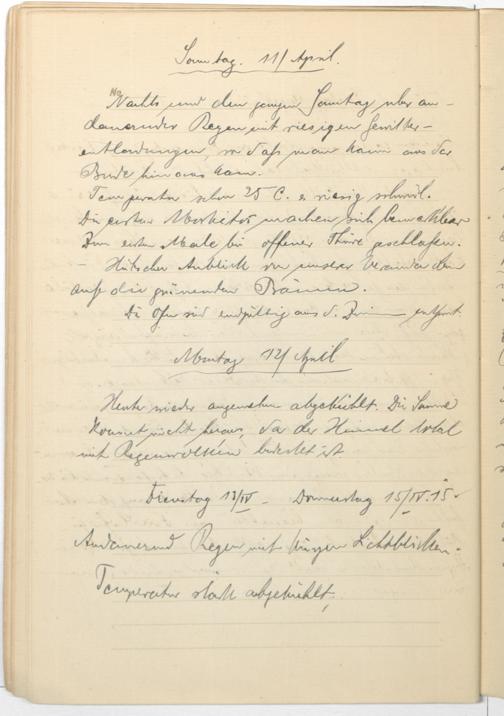 Sonntag. 11/ April.
Nachts und den ganzen Sonntag über an-
dauernder Regen mit riesigen Gewitter-
entladungen, so daß man kaum aus der
Bude hinaus kann.
Temperatur schon 25 C. u riesig schwül.
Die ersten Moskitos machen sich bemerkbar
Zum ersten Male bei offener Thüre geschlafen.
– Hübscher Anblick von unserer Veranda
auf die grünenden Bäume.
Die Öfen sind endgültig aus d. Zimmer entfernt.
Montag 12/ April
Heute wieder angenehm abgekühlt. Die Sonne
kommt nicht heraus, da der Himmel total
mit Regenwolken bedeckt ist
Dienstag 13/IV – Donnerstag 15/IV. 15.
Andauernd Regen mit kurzen Lichtblicken.
Temperatur stark abgekühlt.